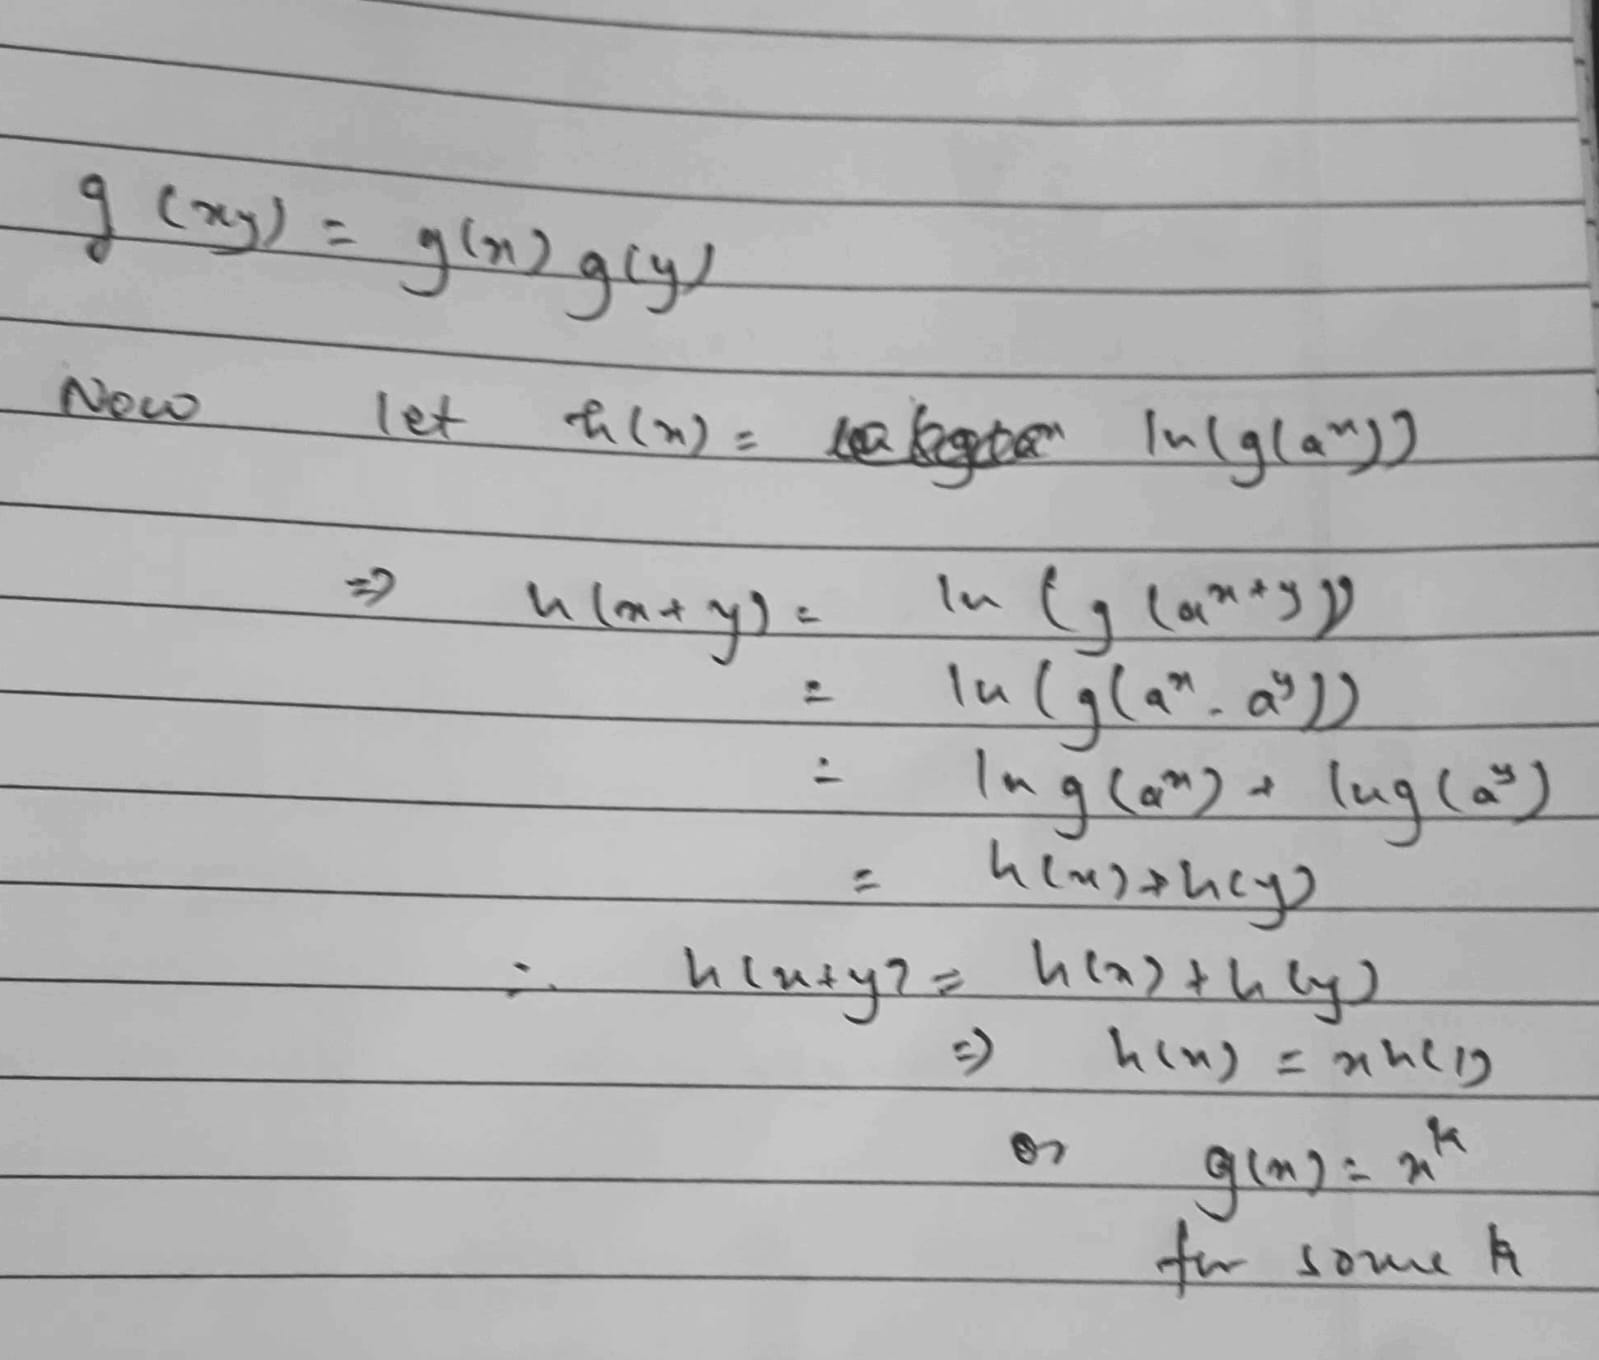 g(xy) = g(x) g(y)
Now let h(x) = ln(g(a^x))
⇒ h(x+y) = ln(g(a^x+y))
= ln(g(a^x. a^y))
= ln g(a^x) + ln g(a^y)
= h(x)+h(y)
∴ h(x+y) = h(x) + h(y)
⇒ h(x) = xh(1)
or g(x) = x^k
for some k